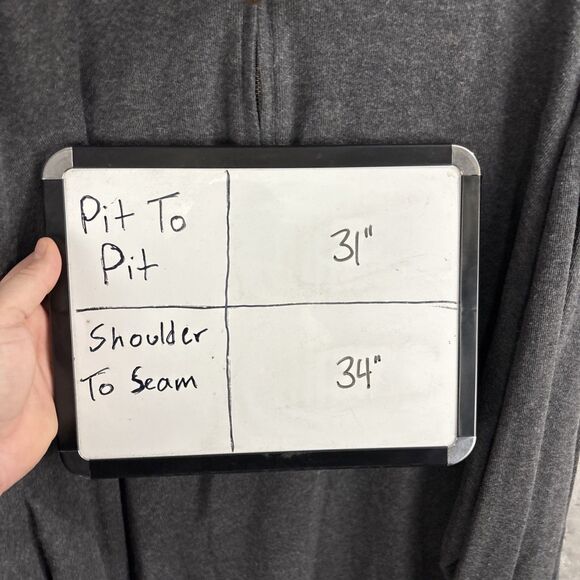 Pit To
Pit
31"
Shoulder
To Seam
34"